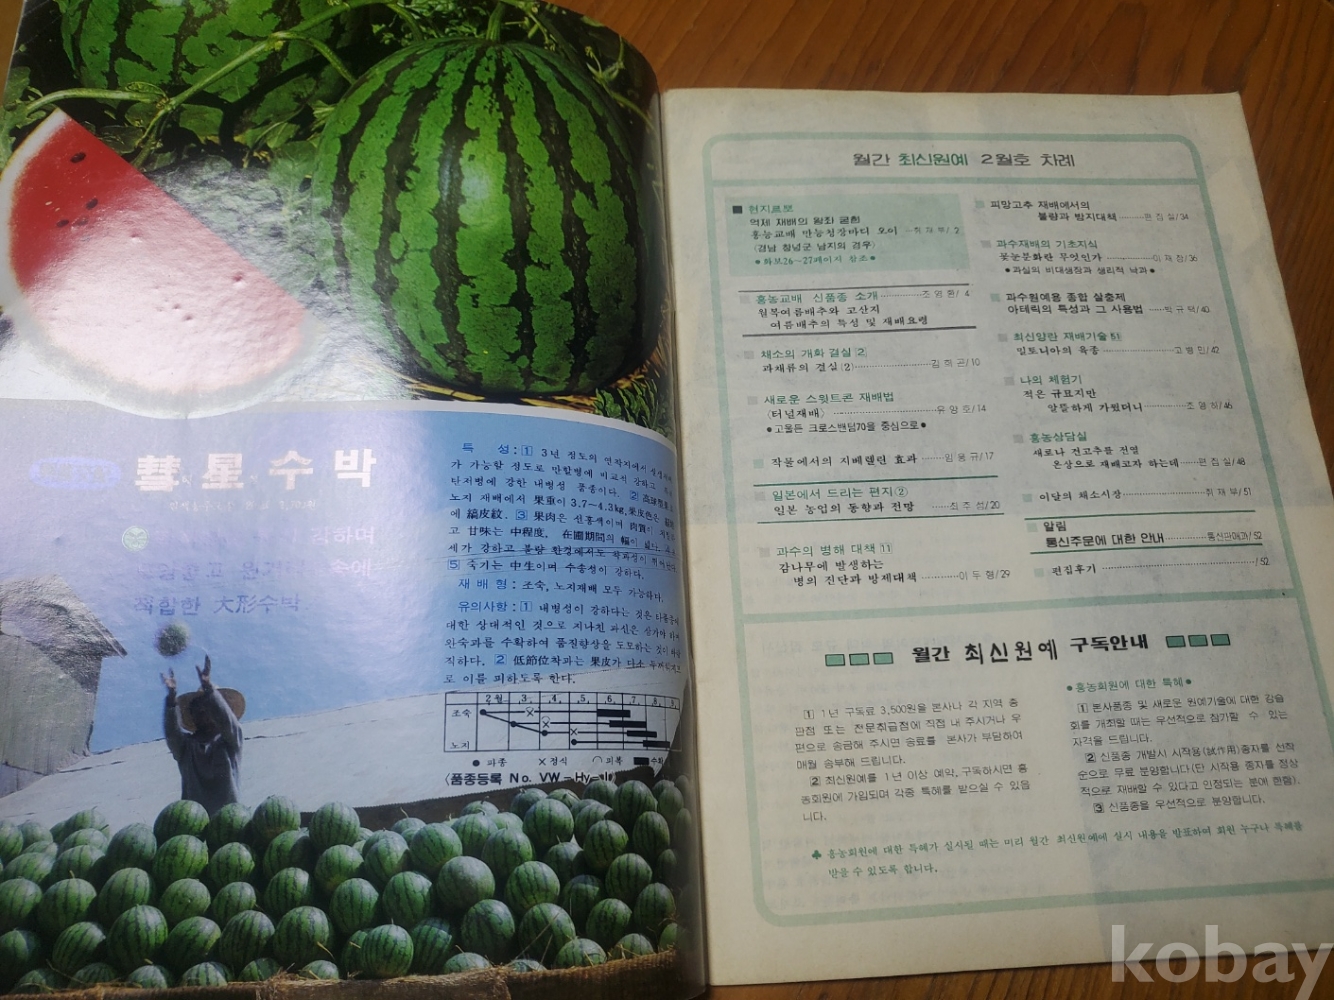 彗星수박
적합한 大形수박
특 성 : 1 3년 정도의 연작지에서
가 가능할 정도로 만할병에 비교적 강하고
탄저병에 강한 내병성 품종이다. 2
노지 재배에서 果重이 3.7~4.3kg, 果皮色은
에 縞皮紋. 3 果肉은 선홍색이며 肉質이
고 甘味는 中程度, 在圃期間의 幅이
세가 강하고 불량 환경에서도 착과성이
5 숙기는 中生이며 수송성이 강하다.
재 배 형 : 조숙, 노지재배 모두 가능하다.
유의사항 : 1 내병성이 강하다는 것은
대한 상대적인 것으로 지나친 과신은 삼가야
완숙과를 수확하여 품질향상을 도모하는 것이
직하다. 2 低節位착과는 果皮가 다소
로 이를 피하도록 한다.
2월 3 4 5 6 7 8 9
조숙
노지
● 파종 × 정식 ⌒ 피복 ■ 수확
〈품종등록 No. VW-Hy-
월간 최신원예 2월호 차례
■ 현지르포
억제 재배의 왕좌 굳힌
흥농교배 만능청장마디 오이 …취재부/2
〈경남 창녕군 남지의 경우〉
●화보26~27페이지 참조●
흥농교배 신품종 소개 …조영환/4
월복여름배추와 고산지
여름배추의 특성 및 재배요령
채소의 개화 결실 2
과채류의 결실(2) …김희곤/10
새로운 스윗트콘 재배법
〈터널재배〉 …유양호/14
●고울든 크로스밴덤70을 중심으로●
작물에서의 지베렐린 효과 …임용규/17
일본에서 드리는 편지②
일본 농업의 동향과 전망 …최주섭/20
과수의 병해 대책 11
감나무에 발생하는
병의 진단과 방제대책 …이두형/29
피망고추 재배에서의
불량과 방지대책 …편집실/34
과수재배의 기초지식
꽃눈분화란 무엇인가 …이재창/36
●과실의 비대생장과 생리적 낙과●
과수원예용 종합 살충제
아테릭의 특성과 그 사용법 …박규택/40
최신양란 재배기술 51
밀토니아의 육종 …고형민/42
나의 체험기
적은 규묘지만
알뜰하게 가꿨더니 …조영하/46
흥농상담실
새로나 건고추를 전열
온상으로 재배코자 하는데 …편집실/48
이달의 채소시장 …취재부/51
알림
통신주문에 대한 안내 …통신판매과/52
편집후기 …/52
월간 최신원예 구독안내
1 1년 구독료 3,500원을 본사나 각 지역 총
판점 또는 전문취급점에 직접 내 주시거나 우
편으로 송금해 주시면 송료를 본사가 부담하여
매월 송부해 드립니다.
2 최신원예를 1년 이상 예약, 구독하시면 흥
농회원에 가입되며 각종 특혜를 받으실 수 있읍
니다.
●흥농회원에 대한 특혜●
1 본사품종 및 새로운 원예기술에 대한 강습
회를 개최할 때는 우선적으로 참가할 수 있는
자격을 드립니다.
2 신품종 개발시 시작용(試作用)종자를 선착
순으로 무료 분양합니다(단 시작용 종자를 정상
적으로 재배할 수 있다고 인정되는 분에 한함).
3 신품종을 우선적으로 분양합니다.
♣ 흥농회원에 대한 특혜가 실시될 때는 미리 월간 최신원예에 실시 내용을 발표하여 회원 누구나 특혜를
받을 수 있도록 합니다.
kobay